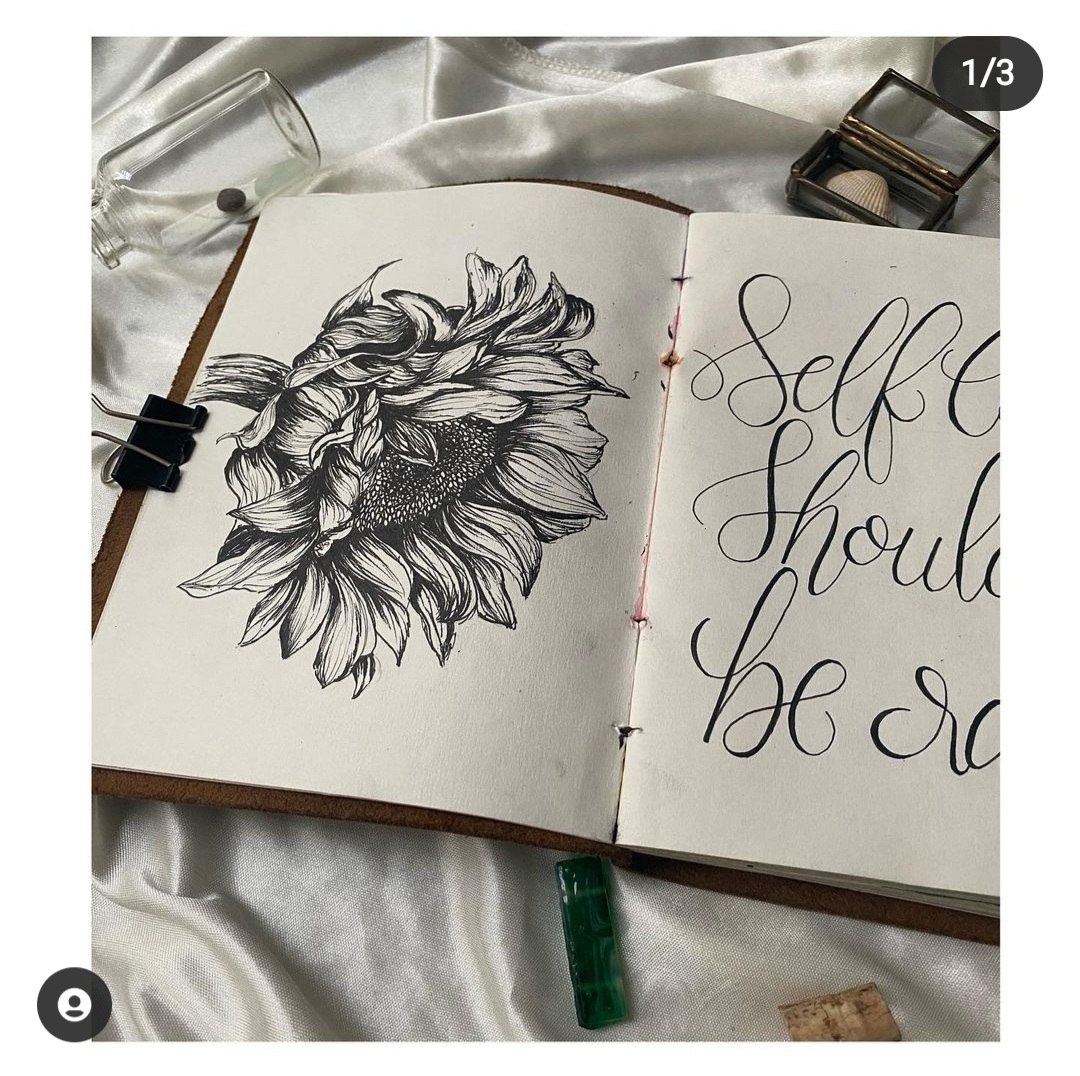 1/3
Self
Should
be